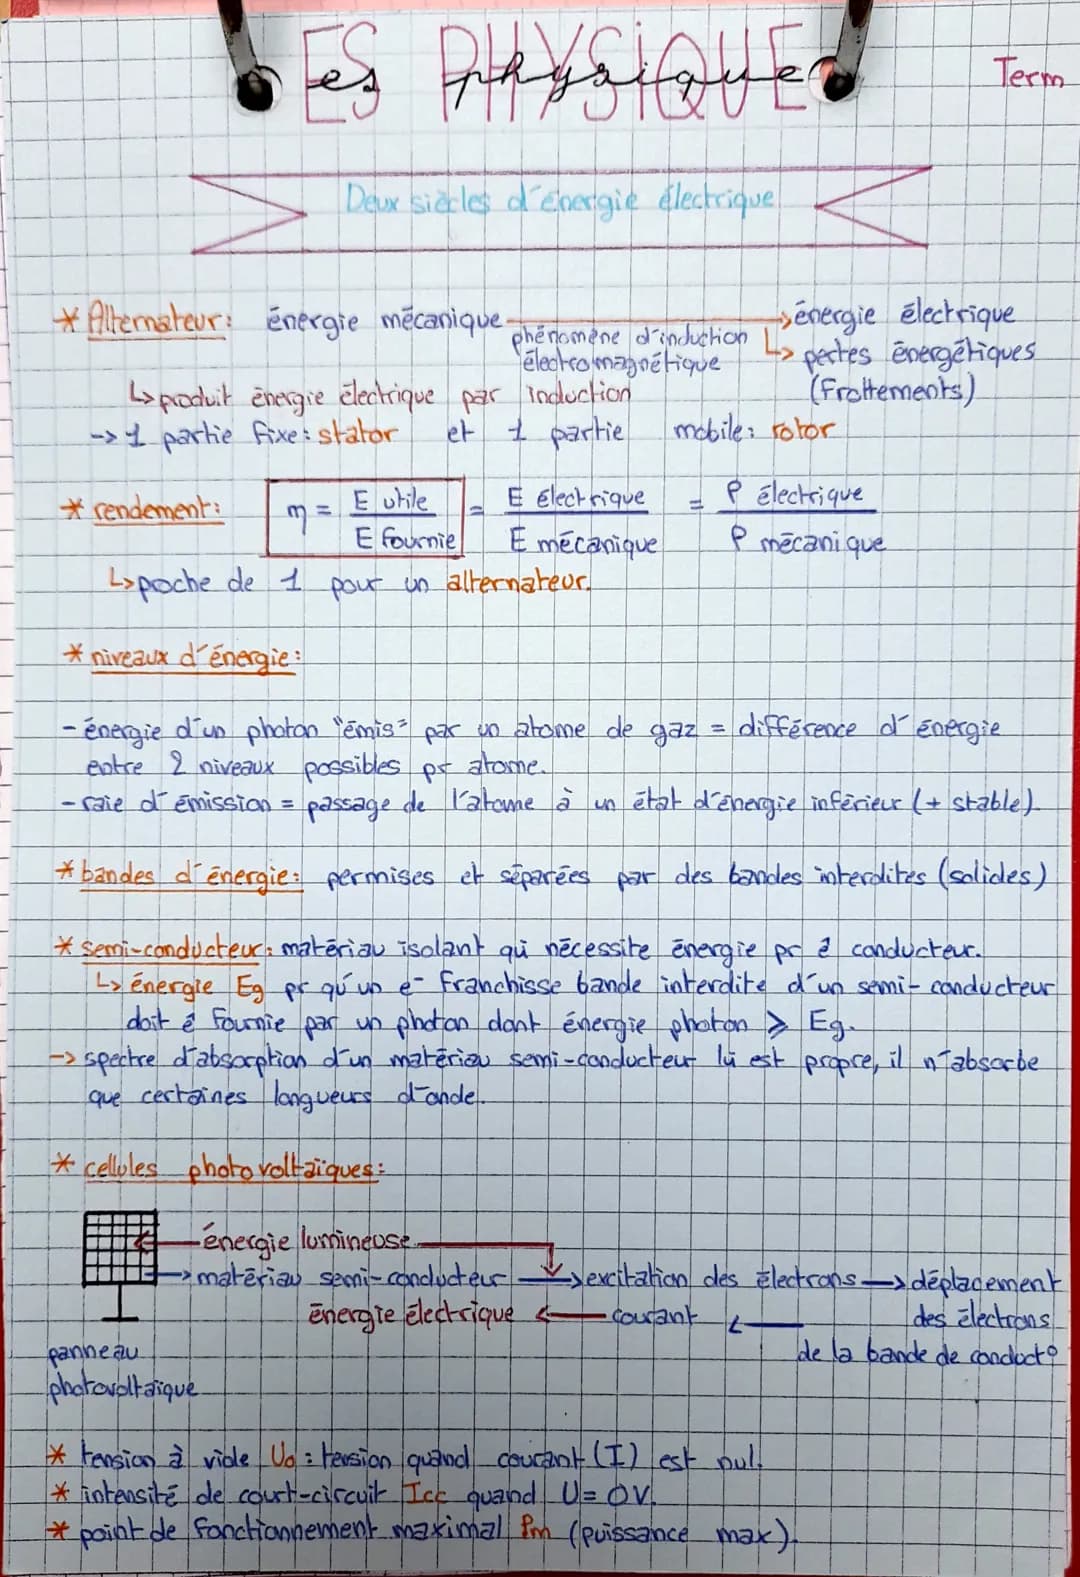 ES PHYSIQUE
es physique
Term
Deux siècles d'énergie électrique
* Alternateur: énergie mécanique → énergie électrique
phénomène d'induction
électromagnétique
↳ pertes énergétiques
(Frottements)
↳ produit énergie électrique par induction
-> 1 partie fixe: stator et 1 partie mobile: rotor
* rendement: η = E utile / E fournie = E électrique / E mécanique = P électrique / P mécanique
↳ proche de 1 pour un alternateur.
* niveaux d'énergie:
- énergie d'un photon "émis" par un atome de gaz = différence d'énergie
entre 2 niveaux possibles pr atome.
- raie d'émission = passage de l'atome à un état d'énergie inférieur (+ stable)
* bandes d'énergie: permises et séparées par des bandes interdites (solides)
* semi-conducteur: matériau isolant qui nécessite énergie pr ê conducteur.
↳ énergie Eg pr qu'un e- franchisse bande interdite d'un semi-conducteur
doit ê fournie par un photon dont énergie photon ⩾ Eg.
-> spectre d'absorption d'un matériau semi-conducteur lui est propre, il n'absorbe
que certaines longueurs d'onde.
* cellules photovoltaïques:
énergie lumineuse
→ matériau semi-conducteur → excitation des électrons → déplacement
énergie électrique ← courant ← des électrons
panneau
de la bande de conduct°
photovoltaïque
* tension à vide U0 : tension quand courant (I) est nul.
* intensité de court-circuit Icc quand U = 0V.
* point de fonctionnement maximal Pm (puissance max).